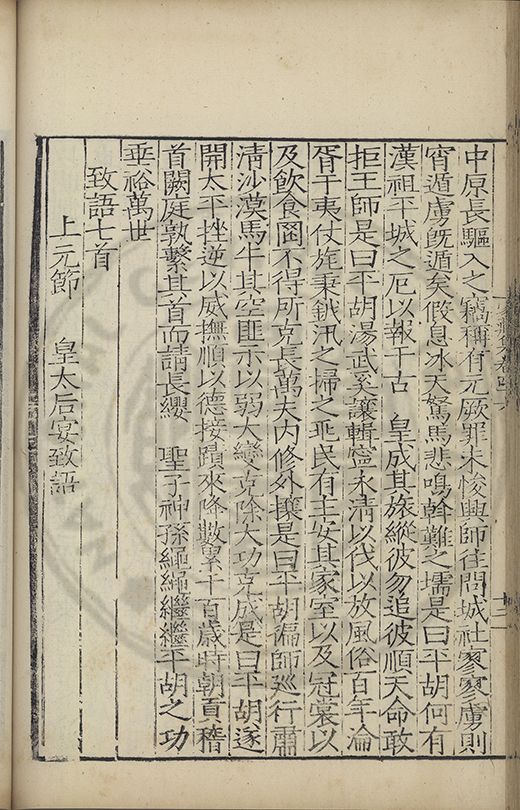 中原長驅入之竊稱有元厥罪未悛興師往問城社寥寥虜則
宵遁虜旣遁矣假息冰天駑馬悲鳴斡難之壖是曰平胡何有
漢祖平城之厄以報千古 皇成其旅縱彼勿追彼順天命敢
拒王師是曰平胡湯武奚讓輯寧永淸以伐以放風俗百年淪
胥于夷仗旄秉鉞汛之掃之兆民有主安其家室以及冠裳以
及飲食罔不得所克長萬夫內修外攘是曰平胡偏師巡行肅
淸沙漠馬牛其空匪示以弱大變克除大功克成是曰平胡遂
開太平挫逆以威撫順以德接蹟來降數累千百歲時朝貢稽
首闕庭孰繫其首而請長纓 聖子神孫繩繩繼繼平胡之功
垂裕萬世
致語七首
上元節 皇太后宴致語